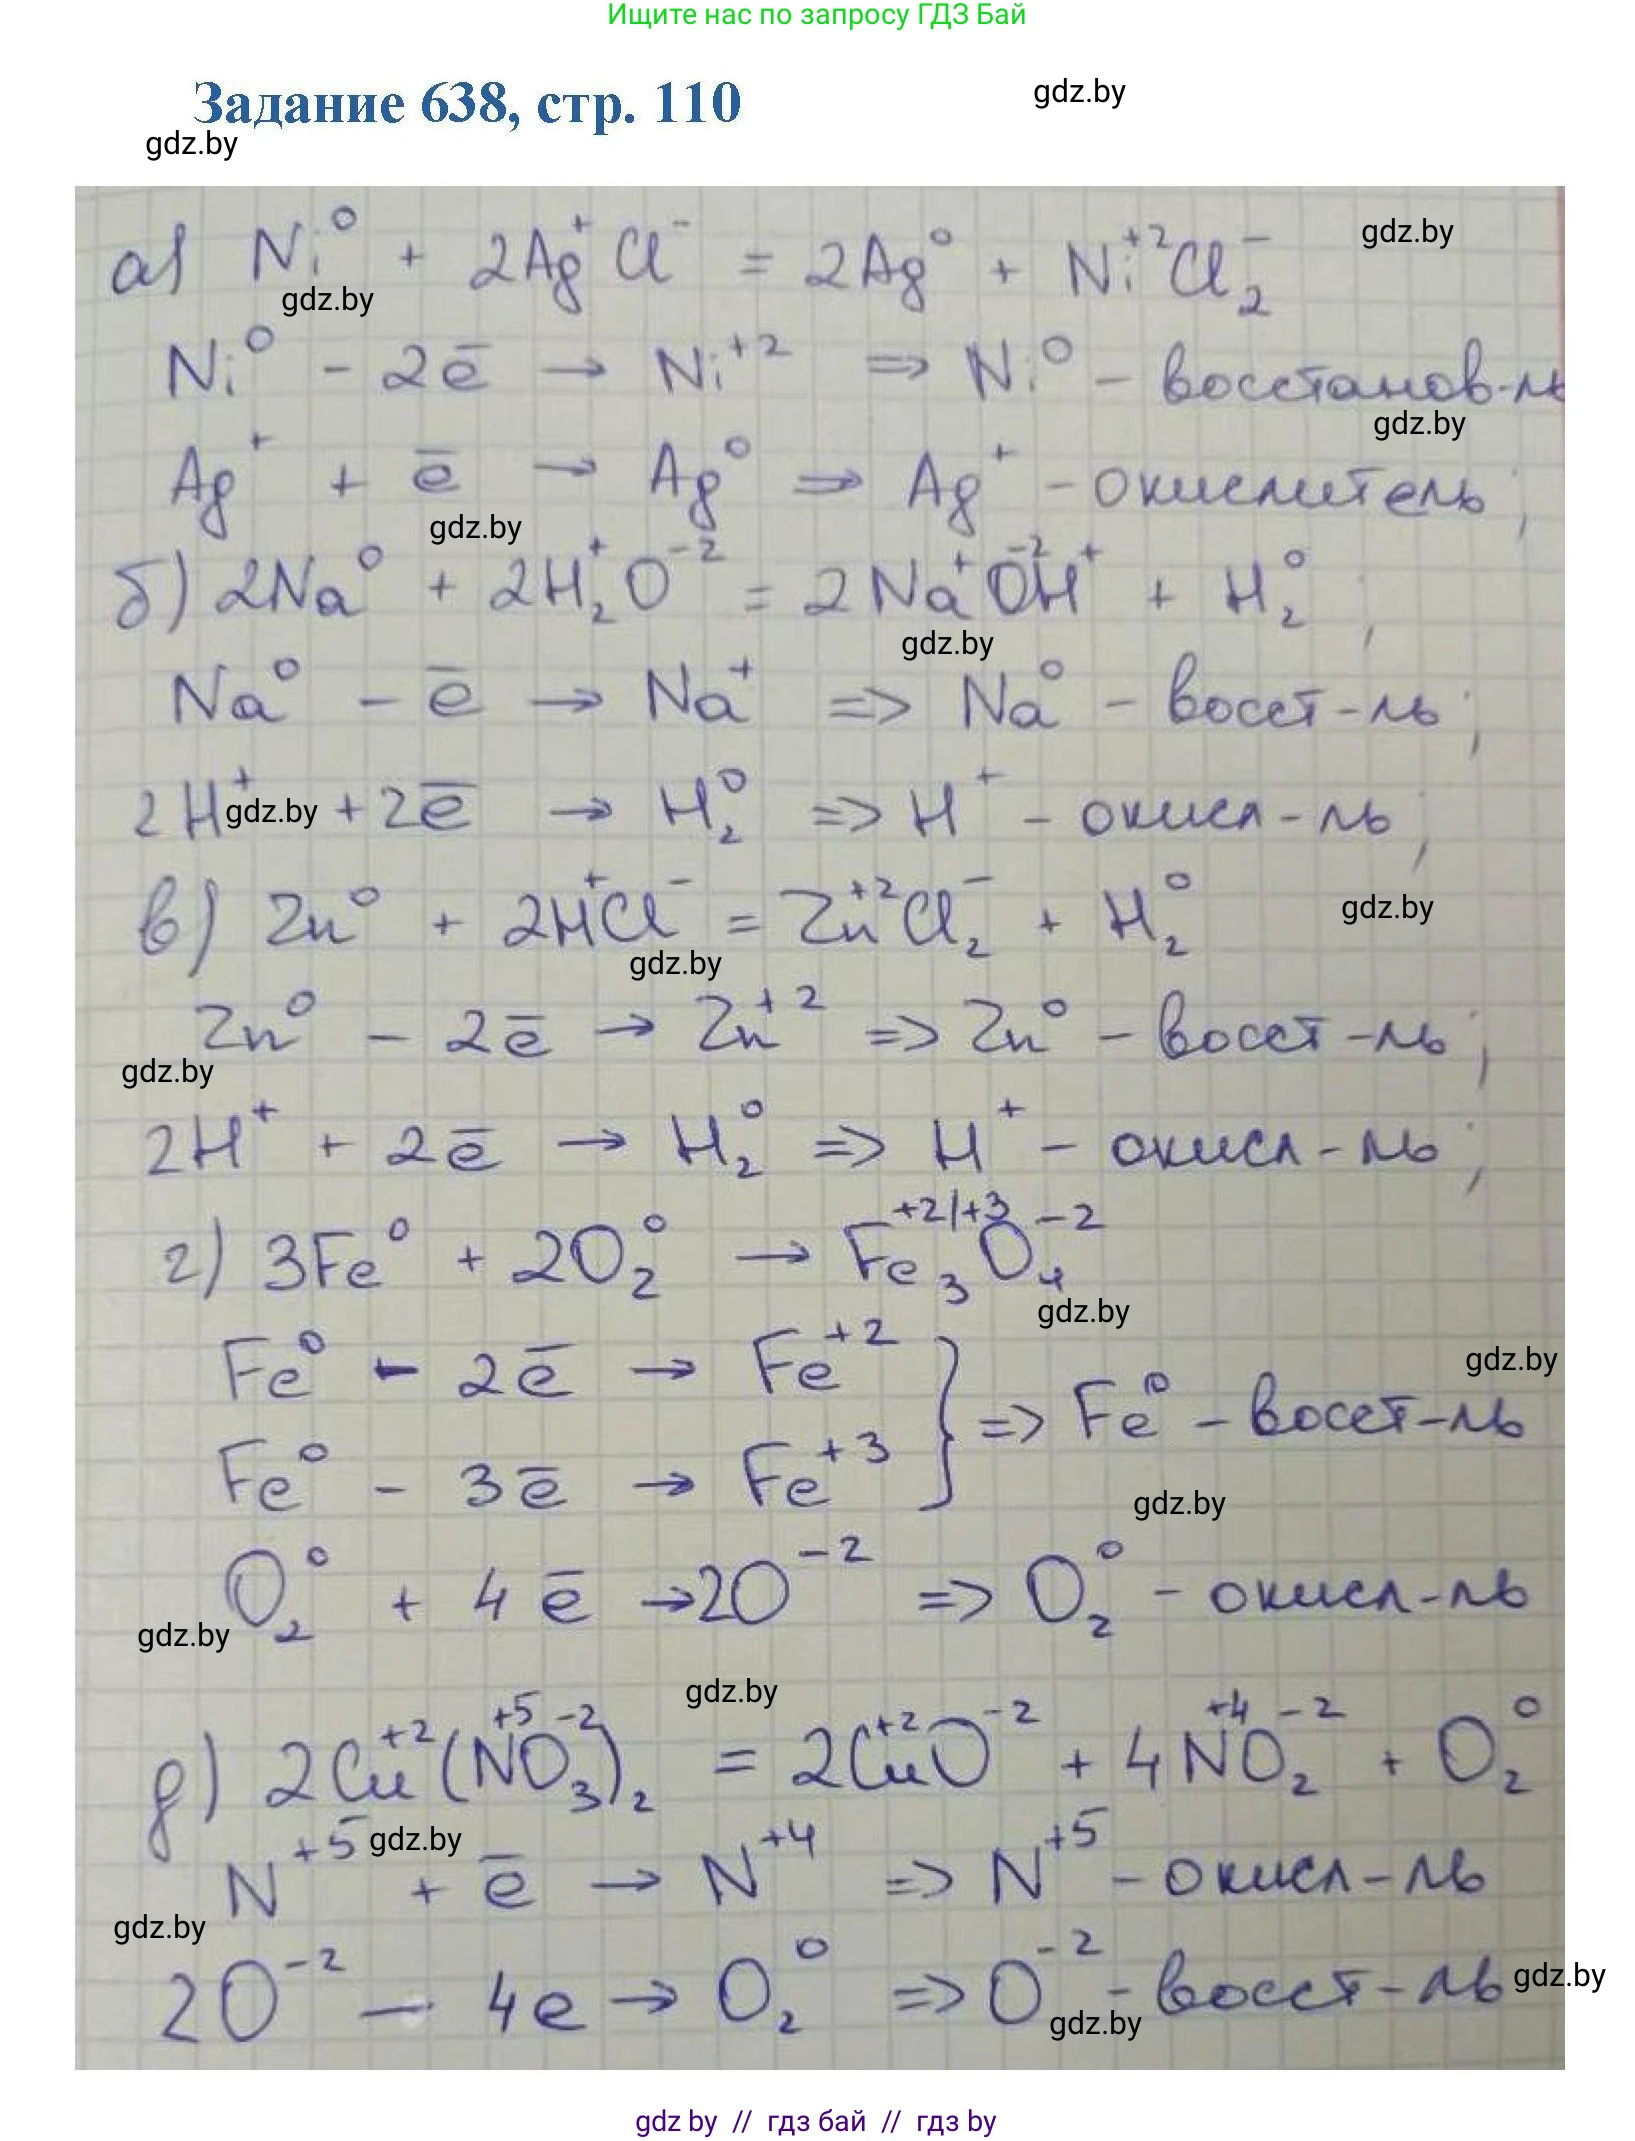 Ищите нас по запросу ГДЗ Бай
Задание 638, стр. 110
gdz.by
gdz.by
а) Ni⁰ + 2Ag⁺Cl⁻ = 2Ag⁰ + Ni⁺²Cl₂⁻
gdz.by
gdz.by
Ni⁰ - 2ē → Ni⁺² => Ni⁰ - восстанов-ль
gdz.by
Ag⁺ + ē → Ag⁰ => Ag⁺ - окислитель;
gdz.by
б) 2Na⁰ + 2H₂⁺O⁻² = 2Na⁺O⁻²H⁺ + H₂⁰;
gdz.by
Na⁰ - ē → Na⁺ => Na⁰ - восст-ль;
2H⁺ + 2ē → H₂⁰ => H⁺ - окисл-ль;
gdz.by
в) Zn⁰ + 2H⁺Cl⁻ = Zn⁺²Cl₂⁻ + H₂⁰
gdz.by
gdz.by
Zn⁰ - 2ē → Zn⁺² => Zn⁰ - восст-ль;
gdz.by
2H⁺ + 2ē → H₂⁰ => H⁺ - окисл-ль;
г) 3Fe⁰ + 2O₂⁰ → Fe₃⁺²/⁺³O₄⁻²
gdz.by
Fe⁰ - 2ē → Fe⁺²
gdz.by
} => Fe⁰ - восст-ль
Fe⁰ - 3ē → Fe⁺³
gdz.by
O₂⁰ + 4ē → 2O⁻² => O₂⁰ - окисл-ль
gdz.by
gdz.by
д) 2Cu⁺²(N⁺⁵O₃⁻²)₂ = 2Cu⁺²O⁻² + 4N⁺⁴O₂⁻² + O₂⁰
gdz.by
N⁺⁵ + ē → N⁺⁴ => N⁺⁵ - окисл-ль
gdz.by
2O⁻² - 4e → O₂⁰ => O⁻² - восст-ль
gdz.by
gdz.by
gdz by // гдз бай // гдз by